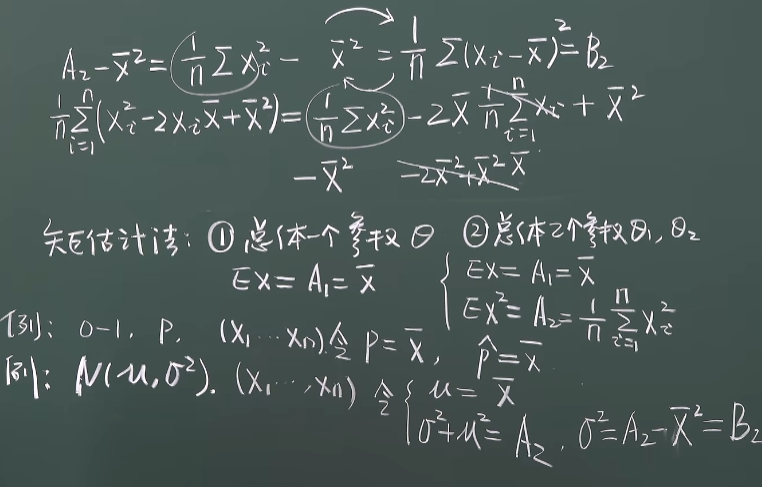 A₂ - x̄² = 1/n Σ xᵢ² - x̄² = 1/n Σ(xᵢ - x̄)² = B₂
1/n Σᵢ₌₁ⁿ (xᵢ² - 2xᵢx̄ + x̄²) = 1/n Σxᵢ² - 2x̄ 1/n Σᵢ₌₁ⁿ xᵢ + x̄²
- x̄² -2x̄² + x̄² x̄
矩估计法: ① 总体一个参数 θ ② 总体2个参数 θ₁, θ₂
EX = A₁ = x̄ { EX = A₁ = x̄
EX² = A₂ = 1/n Σᵢ₌₁ⁿ Xᵢ²
例: 0-1, P, (X₁ … Xₙ) 令 P = x̄, p̂ = x̄
例: N(μ, σ²). (X₁, …, Xₙ) 令 { μ = x̄
σ² + μ² = A₂, σ² = A₂ - x̄² = B₂